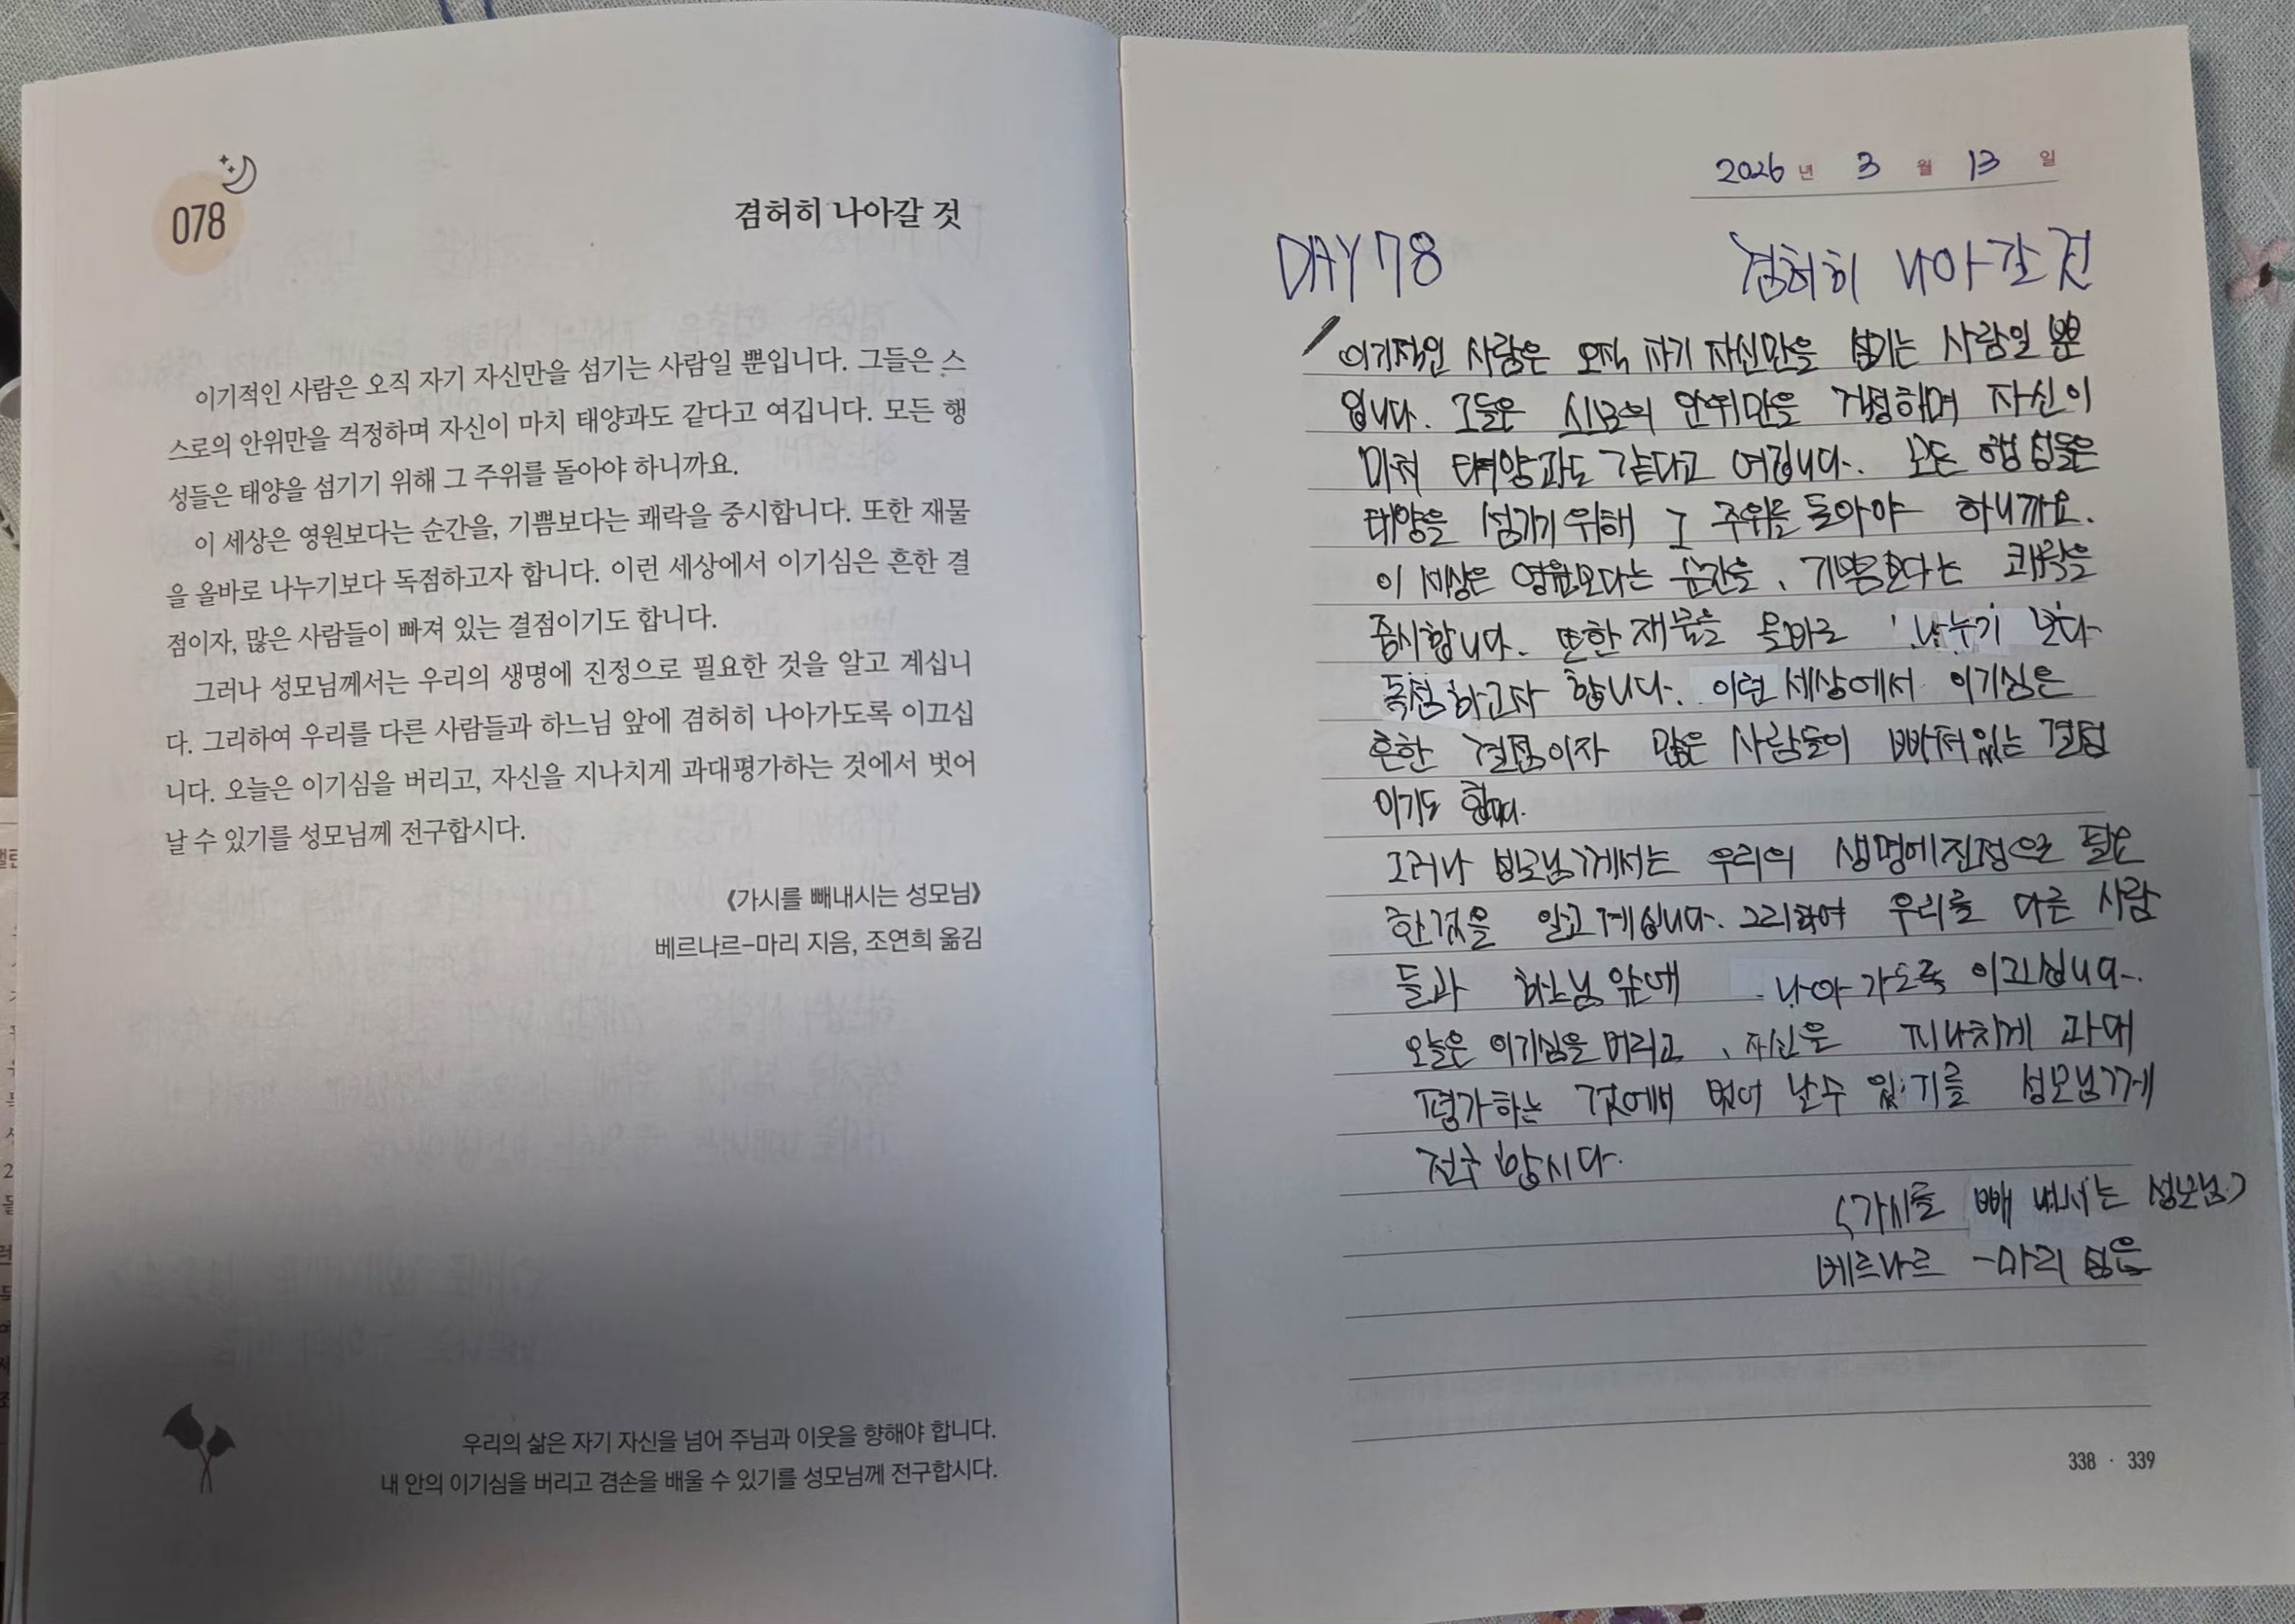 078
겸허히 나아갈 것
이기적인 사람은 오직 자기 자신만을 섬기는 사람일 뿐입니다. 그들은 스
스로의 안위만을 걱정하며 자신이 마치 태양과도 같다고 여깁니다. 모든 행
성들은 태양을 섬기기 위해 그 주위를 돌아야 하니까요.
이 세상은 영원보다는 순간을, 기쁨보다는 쾌락을 중시합니다. 또한 재물
을 올바로 나누기보다 독점하고자 합니다. 이런 세상에서 이기심은 흔한 결
점이자, 많은 사람들이 빠져 있는 결점이기도 합니다.
그러나 성모님께서는 우리의 생명에 진정으로 필요한 것을 알고 계십니
다. 그리하여 우리를 다른 사람들과 하느님 앞에 겸허히 나아가도록 이끄십
니다. 오늘은 이기심을 버리고, 자신을 지나치게 과대평가하는 것에서 벗어
날 수 있기를 성모님께 전구합시다.
《가시를 빼내시는 성모님》
베르나르-마리 지음, 조연희 옮김
우리의 삶은 자기 자신을 넘어 주님과 이웃을 향해야 합니다.
내 안의 이기심을 버리고 겸손을 배울 수 있기를 성모님께 전구합시다.
2026 년 3 월 13 일
DAY 78 겸허히 나아갈 것
이기적인 사람은 오직 자기 자신만을 섬기는 사람일 뿐
입니다. 그들은 스스로의 안위만을 걱정하며 자신이
마치 태양과도 같다고 여깁니다. 모든 행성들은
태양을 섬기기 위해 그 주위를 돌아야 하니까요.
이 세상은 영원보다는 순간을, 기쁨보다는 쾌락을
중시합니다. 또한 재물을 올바로 나누기 보다
독점하고자 합니다. 이런 세상에서 이기심은
흔한 결점이자 많은 사람들이 빠져있는 결점
이기도 합니다.
그러나 성모님께서는 우리의 생명에 진정으로 필요
한것을 알고 계십니다. 그리하여 우리를 다른 사람
들과 하느님 앞에 나아가도록 이끄십니다.
오늘은 이기심을 버리고, 자신을 지나치게 과대
평가하는 것에서 벗어 날수 있기를 성모님께
전구 합시다.
<가시를 빼 내시는 성모님>
베르나르 -마리
338 · 339